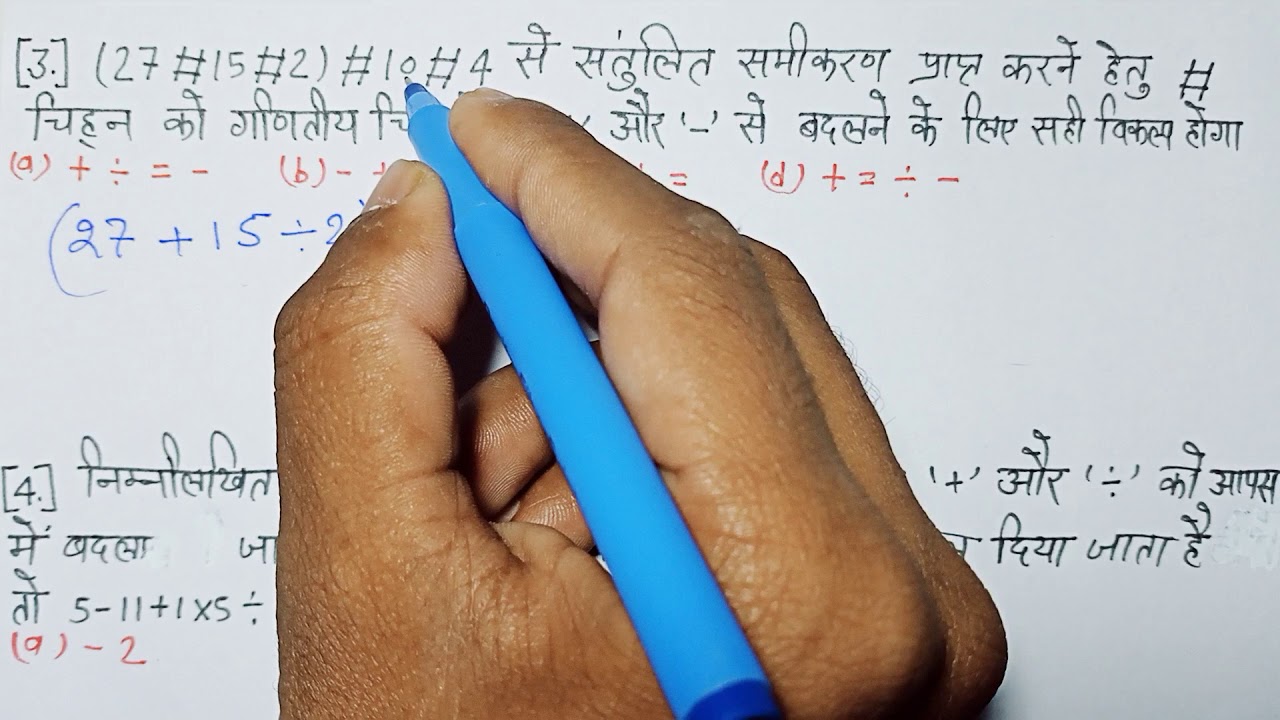 [3.] (27 # 15 # 2) # 10 # 4 से संतुलित समीकरण प्राप्त करने हेतु #
चिह्न को गणितीय ' और '-' से बदलने के लिए सही विकल्प होगा
(a) + ÷ = - (b) - = (d) + = ÷ -
(27 + 15 ÷ 2
[4.] निम्नलिखित '+' और '÷' को आपस
में बदला दिया जाता है
तो 5-11+1×5÷
(a) - 2